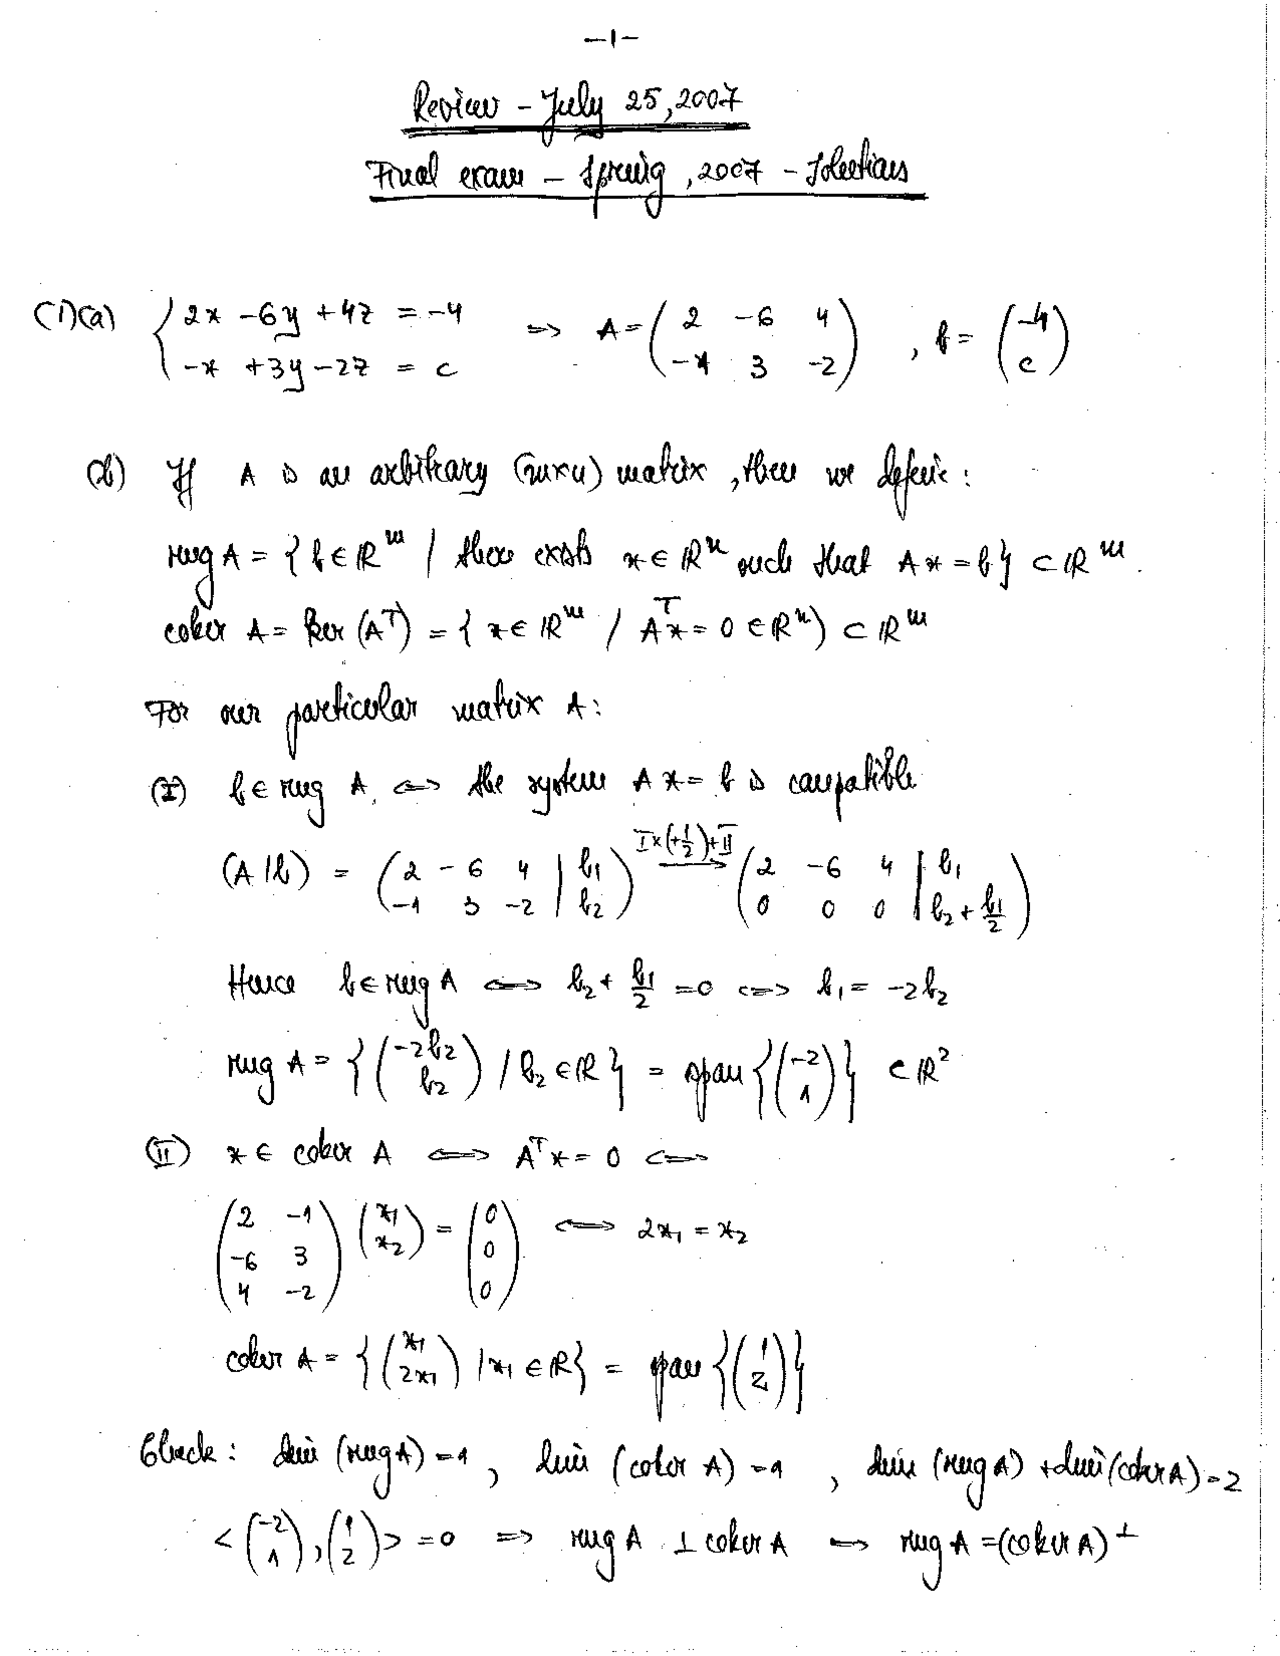 -1-
Review - July 25, 2007
Final exam - Spring, 2007 - Solutions
(1)(a) { 2x -6y +4z = -4 ; -x +3y -2z = c => A = ( 2 -6 4 ; -1 3 -2 ) , b = ( -4 ; c )
(b) If A is an arbitrary (mxn) matrix, then we define:
rng A = { b ∈ ℝ^m / there exists x ∈ ℝ^n such that A x = b } ⊂ ℝ^m.
coker A = ker (A^T) = { x ∈ ℝ^m / A^T x = 0 ∈ ℝ^n ) ⊂ ℝ^m
For our particular matrix A:
(I) b ∈ rng A, <=> the system A x = b is compatible
(A | b) = ( 2 -6 4 | b_1 ; -1 3 -2 | b_2 ) I×(+1/2)+II → ( 2 -6 4 | b_1 ; 0 0 0 | b_2 + b_1/2 )
Hence b ∈ rng A <=> b_2 + b_1/2 = 0 <=> b_1 = -2b_2
rng A = { ( -2b_2 ; b_2 ) / b_2 ∈ ℝ } = span { ( -2 ; 1 ) } ⊂ ℝ^2
(II) x ∈ coker A <=> A^T x = 0 <=>
( 2 -1 ; -6 3 ; 4 -2 ) ( x_1 ; x_2 ) = ( 0 ; 0 ; 0 ) <=> 2x_1 = x_2
coker A = { ( x_1 ; 2x_1 ) | x_1 ∈ ℝ } = span { ( 1 ; 2 ) }
Check: dim (rng A) = 1, dim (coker A) = 1, dim (rng A) + dim (coker A) = 2
< ( -2 ; 1 ), ( 1 ; 2 ) > = 0 => rng A ⊥ coker A => rng A = (coker A)^⊥